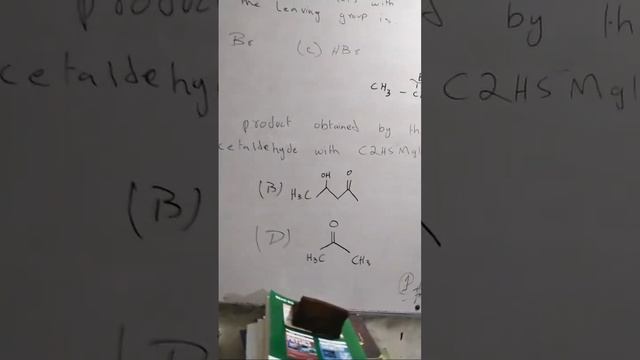 the leaving group is
Br (C) HBr
CH3 - C
product obtained by th
cetaldehyde with C2H5Mg
(B) H3C OH O
(D) O
H3C CH3